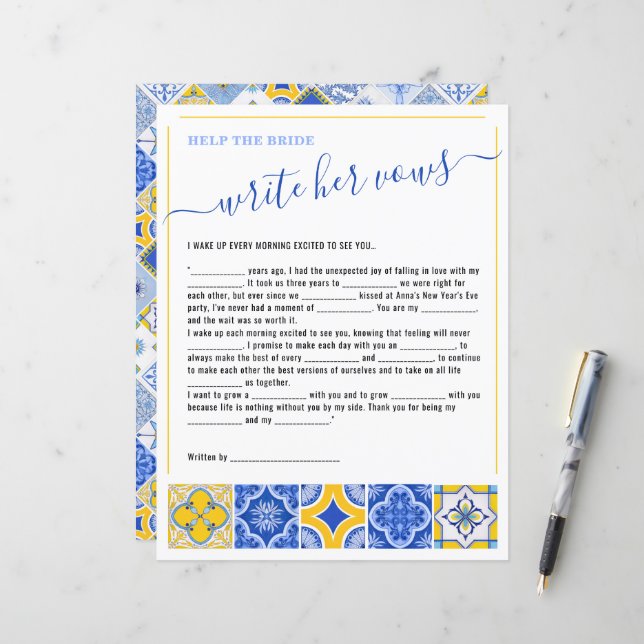 HELP THE BRIDE
write her vows
I WAKE UP EVERY MORNING EXCITED TO SEE YOU...
"______________ years ago, I had the unexpected joy of falling in love with my
______________. It took us three years to ______________ we were right for
each other, but ever since we ______________ kissed at Anna's New Year's Eve
party, I've never had a moment of ______________. You are my ______________,
and the wait was so worth it.
I wake up each morning excited to see you, knowing that feeling will never
______________, I promise to make each day with you an ______________, to
always make the best of every ______________ and ______________, to continue
to make each other the best versions of ourselves and to take on all life
______________ us together.
I want to grow a ______________ with you and to grow ______________ with you
because life is nothing without you by my side. Thank you for being my
______________ and my ______________."
Written by ____________________________